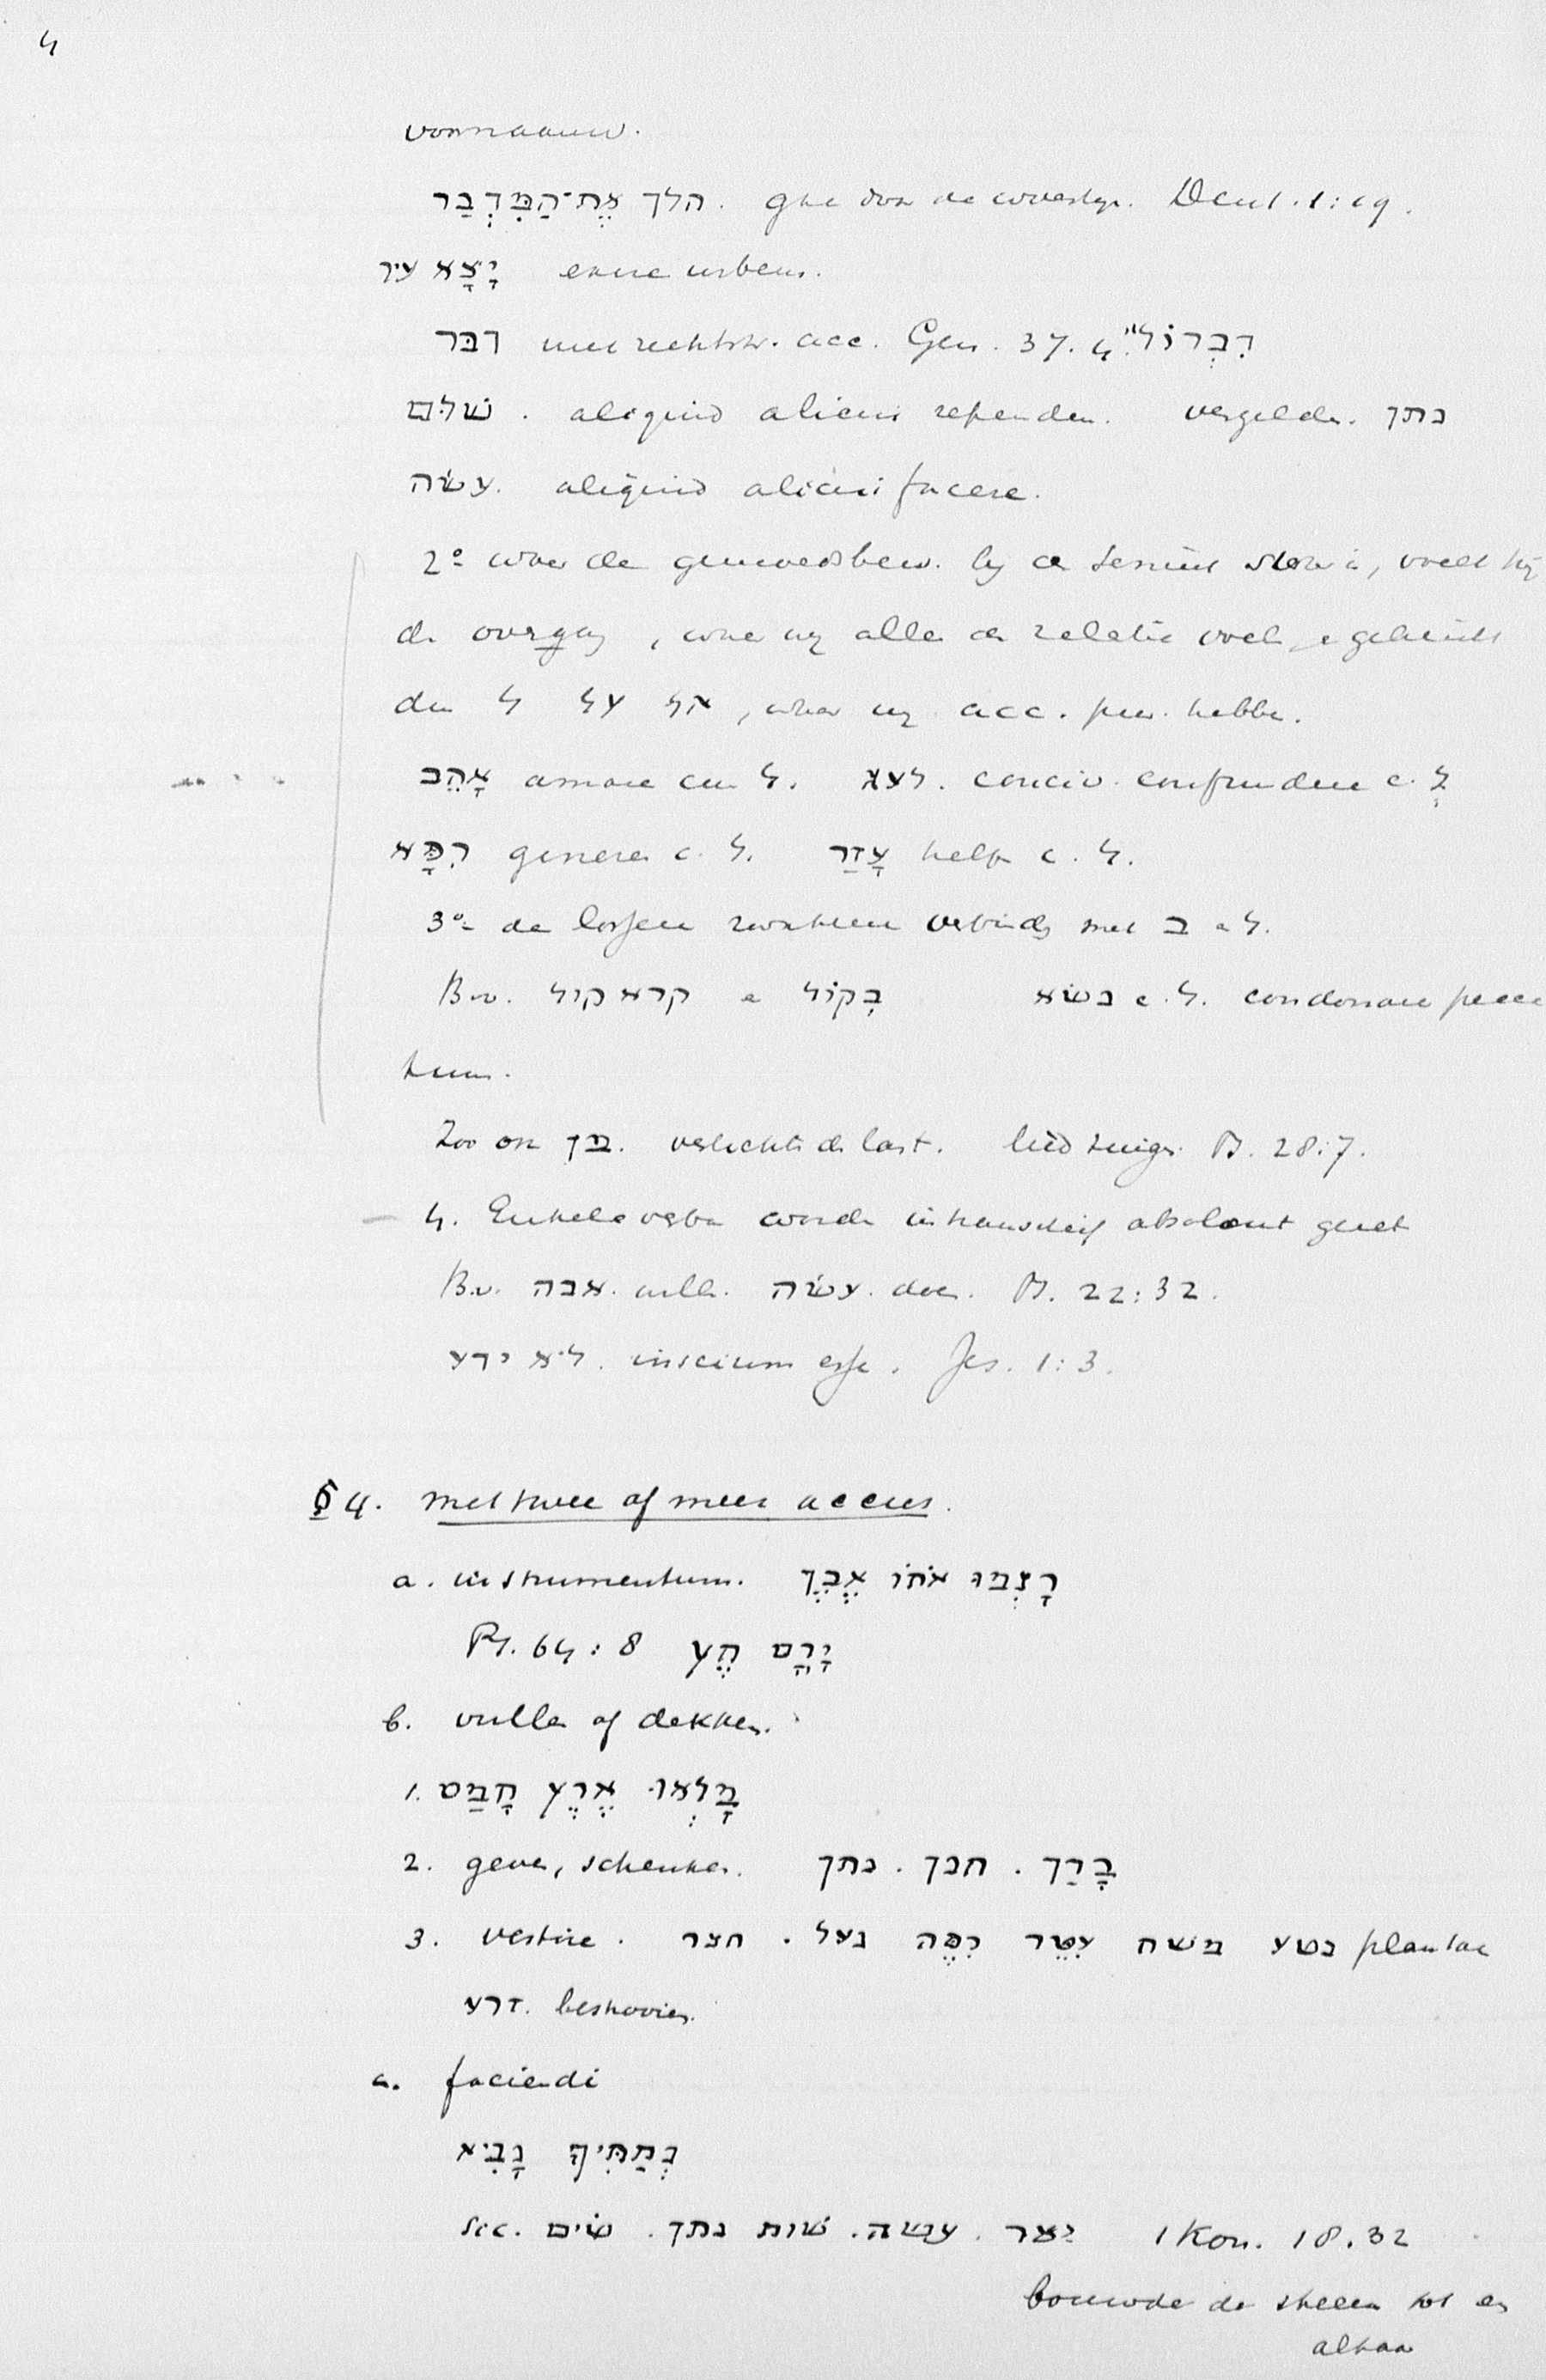 4
voornaamw.
הלך אֶת־הַמִּדְבַּר. gaan door de woestijn. Deut. 1:19.
יָצָא עיר exire urbem.
דבּר met rechtstr. acc. Gen. 37.4 דַּבְּרוֹ
שׁלּם. aliquid alicui rependen. vergelden. נתן
עשׂה. aliquid alicui facere.
2º waar de gemoedsbew. bij de Semiet sterk is, voelt hij
de overgang, waar wij alleen de relatie voelen, en gebruikt
dan ל על אל, waar wij acc. pers. hebben.
אָהֵב amare cum ל. לעג. conviv. confundere c. לְ
רָפָא genezen c. ל. עָזַר helpen c. ל.
3º de lossere woorden verbinding met ב en ל.
B.v. קרא קול en בְּקוֹל נשׂא c. ל. condonare pecca
tum.
Zoo ook מן. verlicht de last. lied zingen Ps. 28:7.
4. Enkele verba worden intransitief absoluut gezet
B.v. אבה. willen. עשׂה. doen. Ps. 22:32.
לא ידע. inscium esse. Jes. 1:3.
§ 4. met twee of meer accus.
a. instrumentum. רָגְמוּ אֹתוֹ אֶבֶן
Ps. 64:8 יָרָם חֵץ
b. vullen of dekken.
1. מָלְאוּ אֶרֶץ חָמַס
2. geven, schenken. בָּרַך. חנן. נתן
3. vestire. חצר. נעל רִפֶּה עִטֵּר משח נטע plantae
זרע. bestrooien.
c. faciendi
נְתַתִּיךָ נָבִיא
sic. שׂים. נתן. שׁות. עשה. יצר 1 Kon. 18.32
bouwde de steenen tot een
altaar